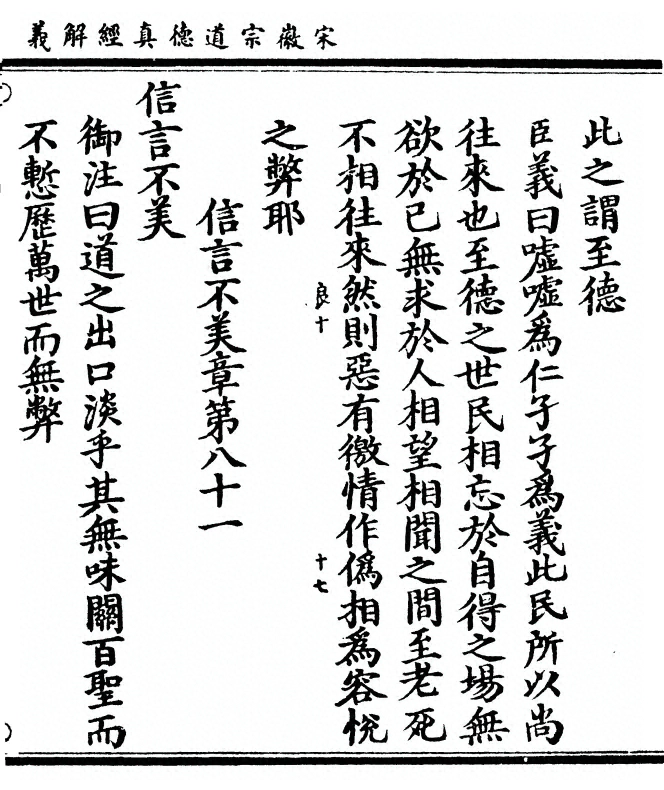 宋徽宗道德真經解義
此之謂至德
臣義曰噓噓爲仁孑孑爲義此民所以尚
往來也至德之世民相忘於自得之場無
欲於已無求於人相望相聞之間至老死
不相往來然則惡有徼情作僞相爲容悅
良十
十七
之弊耶
信言不美章第八十一
信言不美
御注曰道之出口淡乎其無味關百聖而
不慙歷萬世而無弊